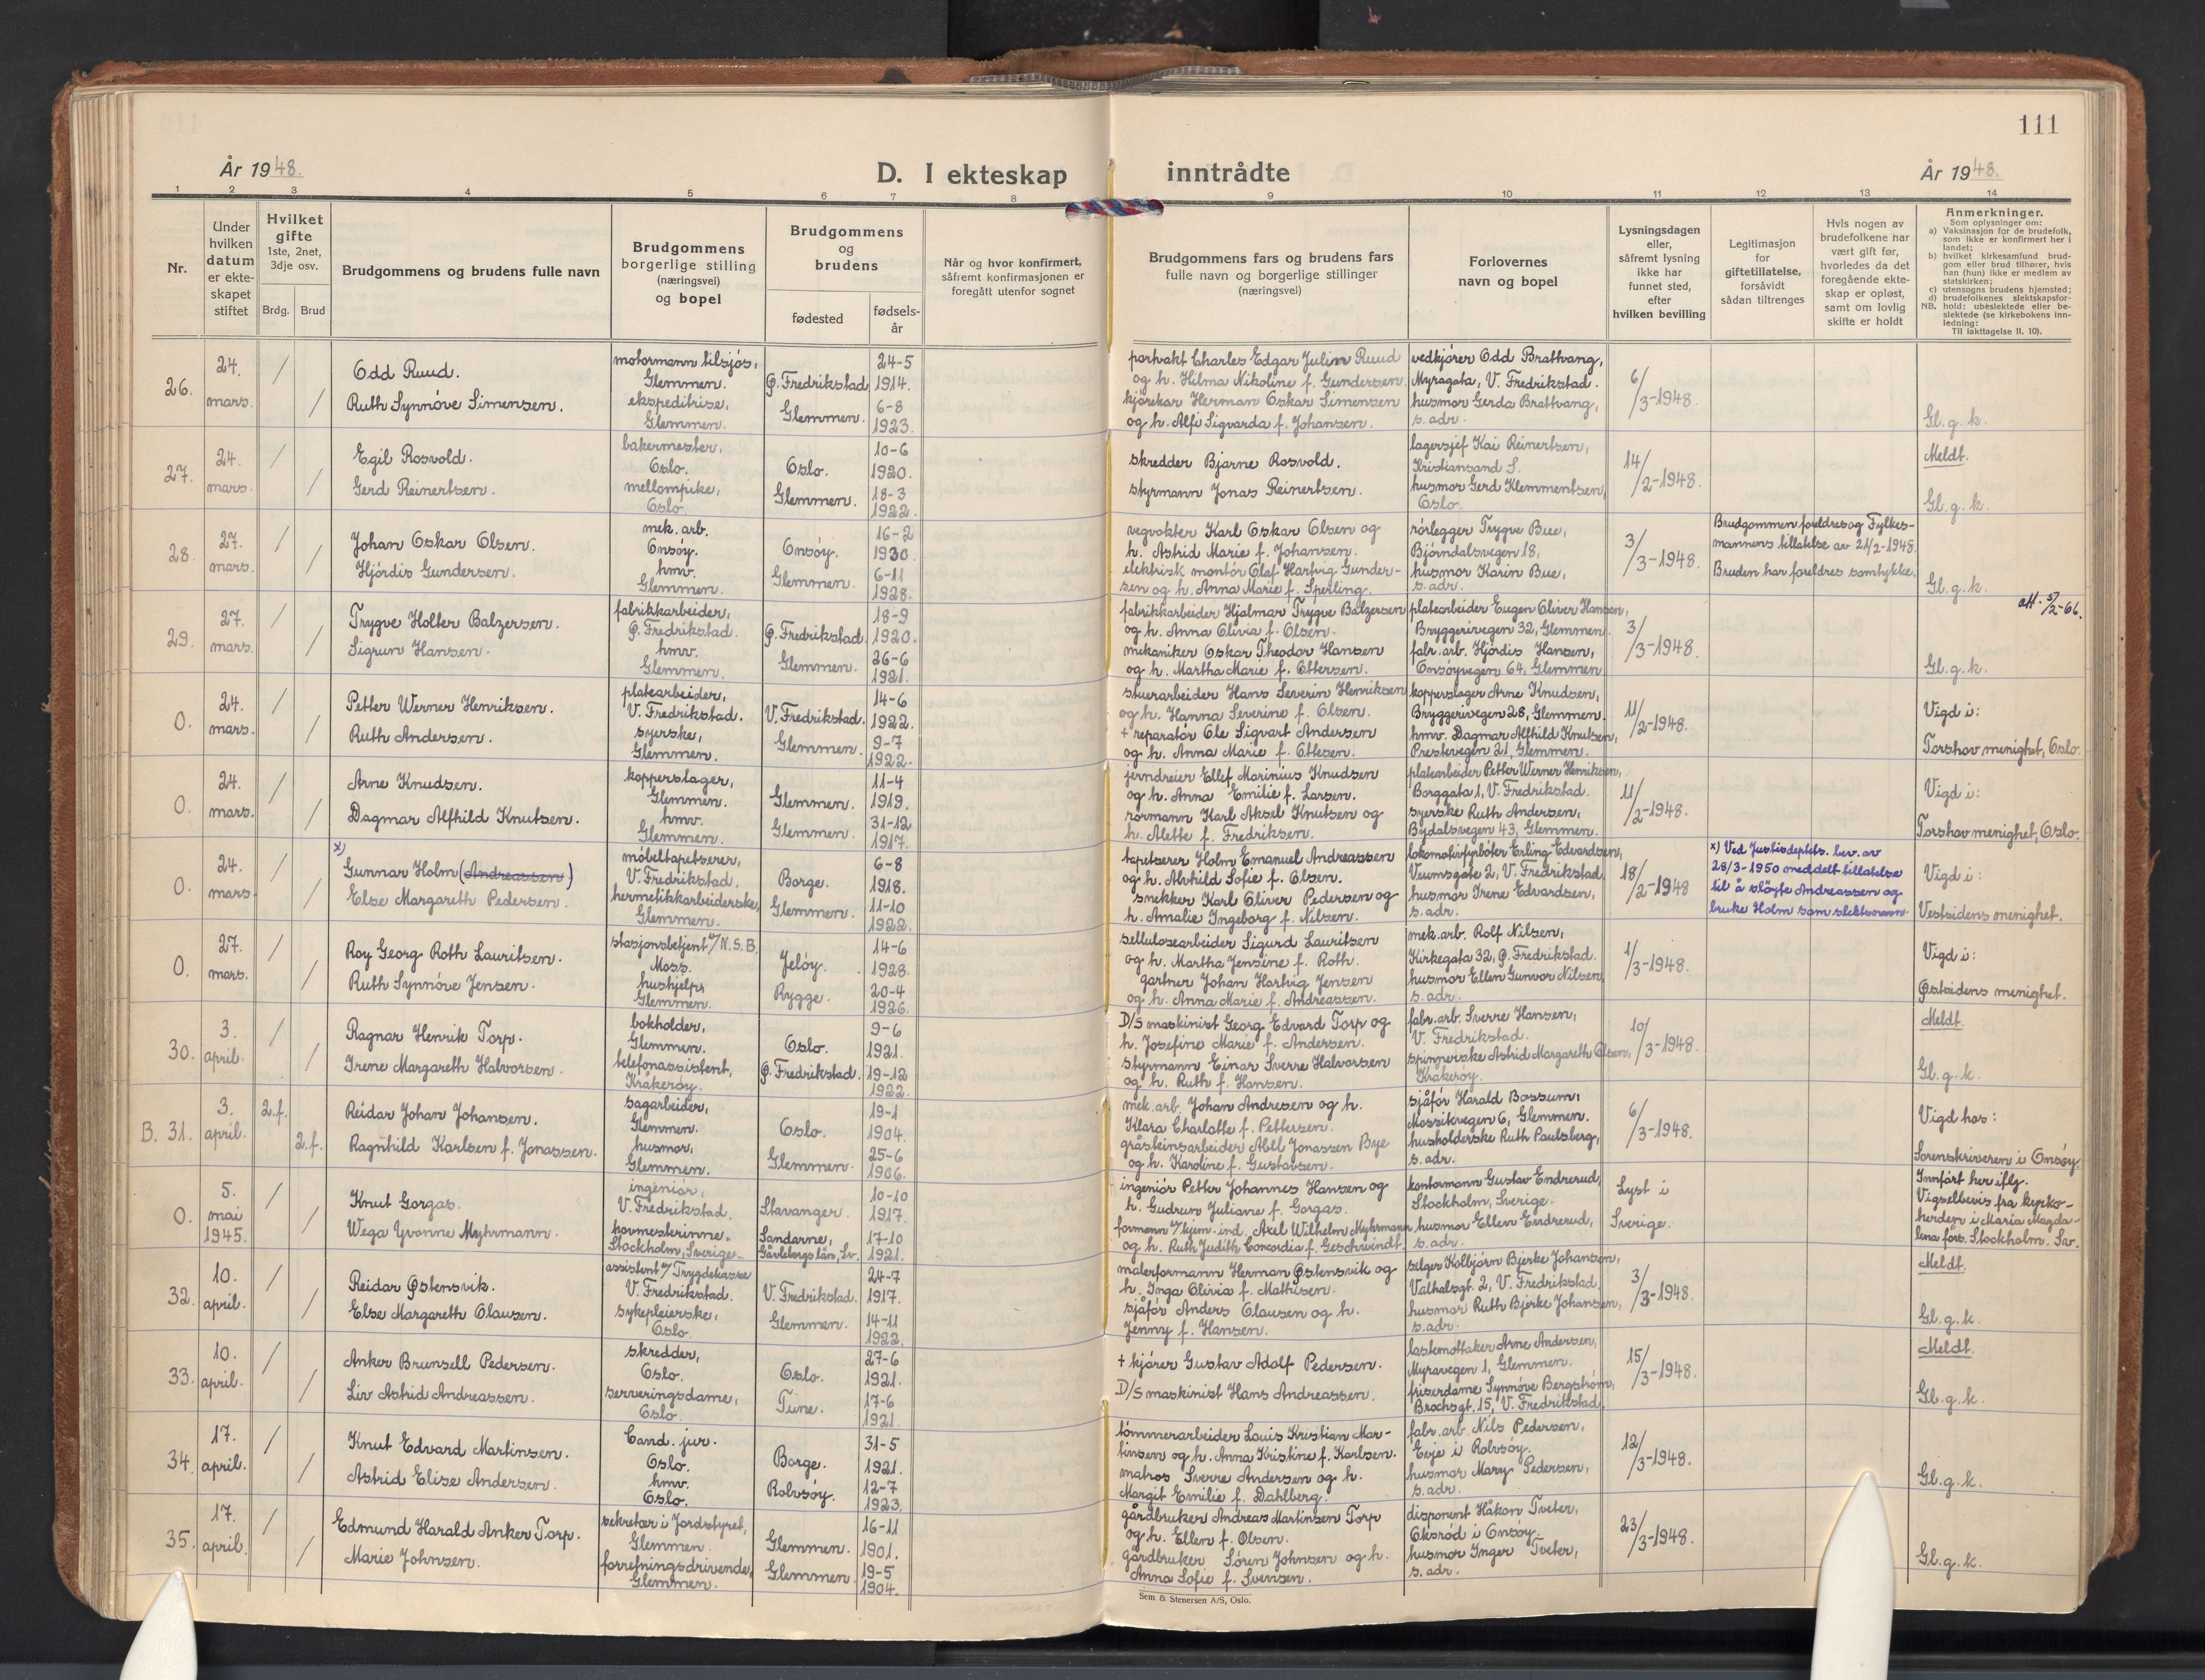 111
År 1948.
D. I ekteskap inntrådte
År 1948.
1 2 3 4 5 6 7 8 9 10 11 12 13 14
Nr.
Under hvilken datum er ekteskapet stiftet
Hvilket gifte 1ste, 2net, 3dje osv.
Brdg. Brud
Brudgommens og brudens fulle navn
Brudgommens borgerlige stilling (næringsvei) og bopel
Brudgommens og brudens
fødested
fødselsår
Når og hvor konfirmert, såfremt konfirmasjonen er foregått utenfor sognet
Brudgommens fars og brudens fars fulle navn og borgerlige stillinger (næringsvei)
Forlovernes navn og bopel
Lysningsdagen eller, såfremt lysning ikke har funnet sted, efter hvilken bevilling
Legitimasjon for giftetillatelse, forsåvidt sådan tiltrenges
Hvis nogen av brudefolkene har vært gift før, hvorledes da det foregående ekteskap er opløst, samt om lovlig skifte er holdt
Anmerkninger.
Som oplysninger om:
a) Vaksinasjon for de brudefolk, som ikke er konfirmert her i landet;
b) hvilket kirkesamfund brudgom eller brud tilhører, hvis han (hun) ikke er medlem av statskirken;
c) utensogns brudens hjemsted;
d) brudefolkenes slektskapsforhold: ubeslektede eller beslektede (se kirkebokens innledning:
NB.
Til iakttagelse II. 10).
26. 24. mars. / /
Odd Ruud.
Ruth Synnöve Simensen.
motormann tilsjøs, Glemmen.
ekspeditrise, Glemmen.
Ø. Fredrikstad 24-5 1914.
Glemmen. 6-8 1923.
portvakt Charles Edgar Julin Ruud
og h. Hilma Nikoline f. Gundersen.
kjörekar Herman Oskar Simensen
og h. Alfi Sigvarda f. Johansen.
vedkjörer Odd Brathvang,
Myragata, V. Fredrikstad.
husmor Gerda Brathvang,
s. adr.
6/3-1948.
Gl. g. k.
27. 24. mars. / /
Egil Rosvold.
Gerd Reinertsen.
bakermester, Oslo.
mellompike, Oslo.
Oslo. 10-6 1920.
Glemmen. 18-3 1922.
skredder Bjarne Rosvold.
styrmann Jonas Reinertsen.
lagersjef Kai Reinertsen,
Kristiansand S.
husmor Gerd Klemmentsen,
Oslo.
14/2-1948.
Meldt.
Gl. g. k.
28. 27. mars. / /
Johan Oskar Olsen.
Hjördis Gundersen.
mek. arb. Onsöy.
hmv. Glemmen.
Onsöy. 16-2 1930.
Glemmen. 6-11 1928.
vegvokter Karl Oskar Olsen og
h. Astrid Marie f. Johansen.
elektrisk montör Olaf Hartvig Gunder-
sen og h. Anna Marie f. Sperling.
rörlegger Trygve Bue,
Björndalsvegen 18,
husmor Karin Bue,
s. adr.
3/3-1948.
Brudgommen foreldres og Fylkes-
mannens tillatelse av 21/2-1948.
Bruden har foreldres samtykke.
Gl. g. k.
29. 27. mars. / /
Trygve Holter Balzersen.
Sigrun Hansen.
fabrikkarbeider, Ø. Fredrikstad.
hmv. Glemmen.
Ø. Fredrikstad. 18-9 1920.
Glemmen. 26-6 1921.
fabrikkarbeider Hjalmar Trygve Balzersen
og h. Anna Olivia f. Olsen.
mekaniker Oskar Theodor Hansen
og h. Martha Marie f. Ottersen.
platearbeider Eugen Oliver Hansen,
Bryggerivegen 32, Glemmen.
fabr. arb. Hjördis Hansen,
Onsöyvegen 64, Glemmen
3/3-1948.
att. 5/2-66.
Gl. g. k.
0. 24. mars. / /
Petter Werner Henriksen.
Ruth Andersen.
platearbeider, V. Fredrikstad.
syerske, Glemmen.
V. Fredrikstad. 14-6 1922.
Glemmen. 9-7 1922.
stuerarbeider Hans Severin Henriksen
og h. Hanna Severine f. Olsen.
+ reparatör Ole Sigvart Andersen
og h. Anna Marie f. Ottesen.
kopperslager Arne Knudsen,
Bryggerivegen 28, Glemmen.
hmv. Dagmar Alfhild Knutsen,
Prestevegen 21, Glemmen.
11/2-1948.
Vigd i:
Torshov menighet, Oslo.
0. 24. mars. / /
Arne Knudsen.
Dagmar Alfhild Knutsen.
kopperslager, Glemmen.
hmv. Glemmen.
Glemmen. 11-4 1919.
Glemmen. 31-12 1917.
jerndreier Ellef Marinius Knudsen
og h. Anna Emilie f. Larsen.
rormann Karl Aksel Knutsen og
h. Alette f. Fredriksen.
platearbeider Petter Werner Henriksen,
Borggata 1, V. Fredrikstad.
syerske Ruth Andersen,
Bydalsvegen 43, Glemmen.
11/2-1948.
Vigd i:
Torshov menighet, Oslo.
0. 24. mars. / /
x)
Gunnar Holm (Andreassen)
Else Margareth Pedersen.
möbeltapetserer, V. Fredrikstad.
hermetikkarbeiderske, Glemmen.
Borge. 6-8 1918.
Glemmen. 11-10 1922.
tapetserer Holm Emanuel Andreassen
og h. Alvhild Sofie f. Olsen.
snekker Karl Oliver Pedersen og
h. Amalie Ingeborg f. Nilsen.
lokomotivfyrböter Erling Edvardsen,
Veumsgate 2, V. Fredrikstad
husmor Irene Edvardsen,
s. adr.
18/2-1948
x) Ved Justisdeptets. bev. av
28/3-1950 meddelt tillatelse
til å slöyfe Andreassen og
bruke Holm som slektsnavn.
Vigd i:
Vestsidens menighet.
0. 27. mars. / /
Roy Georg Roth Lauritsen.
Ruth Synnöve Jensen.
stasjonsbetjent v/N.S.B. Moss.
hushjelp, Glemmen.
Jelöy. 14-6 1928.
Rygge. 20-4 1926.
sellulosearbeider Sigurd Lauritsen
og h. Martha Jensine f. Roth.
gartner Johan Hartvig Jensen
og h. Anna Marie f. Andreassen.
mek. arb. Rolf Nilsen,
Kirkegata 32, Ø. Fredrikstad.
husmor Ellen Gunvor Nilsen,
s. adr.
1/3-1948.
Vigd i:
Østsidens menighet.
30. 3. april. / /
Ragnar Henrik Torp.
Irene Margareth Halvorsen.
bokholder, Glemmen.
telefonassistent, Kråkeröy.
Oslo. 9-6 1921.
Ø. Fredrikstad. 19-12 1922.
D/S maskinist Georg Edvard Torp og
h. Josefine Marie f. Andersen.
styrmann Einar Sverre Halvorsen
og h. Ruth f. Hansen.
fabr. arb. Sverre Hansen,
V. Fredrikstad.
spinnerske Astrid Margareth Olsen,
Kråkeröy.
10/3-1948.
Meldt.
Gl. g. k.
B. 31. 3. april. 2.f. 2.f.
Reidar Johan Johansen.
Ragnhild Karlsen f. Jonassen.
sagarbeider, Glemmen.
husmor, Glemmen.
Oslo. 19-1 1904.
Glemmen. 25-6 1906.
mek. arb. Johan Andresen og h.
Klara Charlotte f. Pettersen.
gråsteinsarbeider Abel Jonassen Bye
og h. Karoline f. Gustavsen.
sjåför Harald Bossum,
Mossikvegen 6, Glemmen.
husholderske Ruth Paulsberg,
s. adr.
6/3-1948.
Vigd hos:
Sorenskriveren i Onsöy.
0. 5. mai 1945. / /
Knut Gorgas.
Wega Yvonne Myhrmann.
ingeniör, V. Fredrikstad.
hovmesterinne, Stockholm, Sverige.
Stavanger. 10-10 1917.
Sandarne, Gävleborgs län, Sv. 17-10 1921.
ingeniör Petter Johannes Hansen og
h. Gudrun Juliane f. Gorgas.
formann v/kjem. ind. Axel Wilhelm Myhrmann
og h. Ruth Judith Concordia f. Geschwindt.
kontormann Gustav Endrerud,
Stockholm, Sverige.
husmor Ellen Endrerud,
s. adr.
Lyst i Sverige.
Innfört her iflg.
Vigselbevis fra kyrko-
herden i Maria Magda-
lena förs. Stockholm. Sv.
32. 10. april. / /
Reidar Østensvik.
Else Margareth Clausen.
assistent v/Trygdekasse V. Fredrikstad.
sykepleierske, Oslo.
V. Fredrikstad. 24-7 1917.
Glemmen. 14-11 1922.
malerformann Herman Østensvik og
h. Inga Olivia f. Mathisen.
sjåför Anders Clausen og h.
Jenny f. Hansen.
selger Kolbjörn Bjerke Johansen,
Valhalsgt. 2, V. Fredrikstad.
husmor Ruth Bjerke Johansen,
s. adr.
3/3-1948.
Meldt.
Gl. g. k.
33. 10. april. / /
Anker Brunsell Pedersen.
Liv Astrid Andreassen.
skredder, Oslo.
serveringsdame, Oslo.
Oslo. 27-6 1921.
Tune. 17-6 1921.
+ kjörer Gustav Adolf Pedersen.
D/S maskinist Hans Andreassen.
lastemottaker Arne Andersen,
Myravegen 1, Glemmen.
friserdame Synnöve Bergström,
Brochsgt. 15, V. Fredrikstad.
15/3-1948.
Meldt.
Gl. g. k.
34. 17. april. / /
Knut Edvard Martinsen.
Astrid Elise Andersen.
Cand. jur. Oslo.
hmv. Oslo.
Borge. 31-5 1921.
Rolvsöy. 12-7 1923.
tömmerarbeider Louis Kristian Mar-
tinsen og h. Anna Kristine f. Karlsen.
matros Sverre Andersen og h.
Margit Emilie f. Dahlberg.
fabr. arb. Nils Pedersen,
Evje i Rolvsöy.
husmor Mary Pedersen,
s. adr.
12/3-1948.
Gl. g. k.
35. 17. april. / /
Edmund Harald Anker Torp.
Marie Johnsen.
sekretær i Jordstyret, Glemmen.
forretningsdrivende, Glemmen.
Glemmen. 16-11 1901.
Glemmen. 19-5 1904.
gårdbruker Andreas Martinsen Torp
og h. Ellen f. Olsen.
gårdbruker Sören Johnsen og h.
Anna Sofie f. Svensen.
disponent Håkon Tveter,
Oksröd i Onsöy.
husmor Inger Tveter,
s. adr.
23/3-1948.
Gl. g. k.
Sem & Stenersen A/S, Oslo.